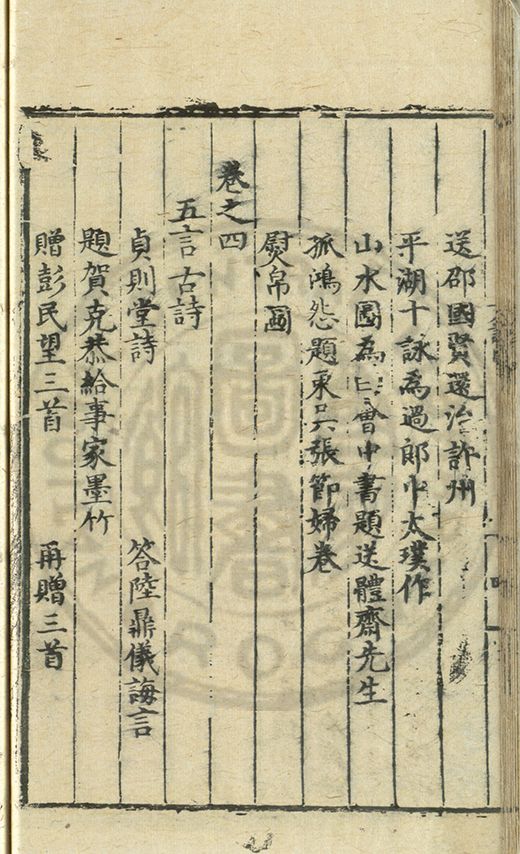 送邵國賢還治許州
平湖十詠為過郎中太璞作
山水圖為 會中書題送體齋先生
孤鴻怨題東吳張節婦卷
熨帛圖
卷之四
五言古詩
貞則堂詩 答陸鼎儀誨言
題賀克恭給事家墨竹
贈彭民望三首 再贈三首